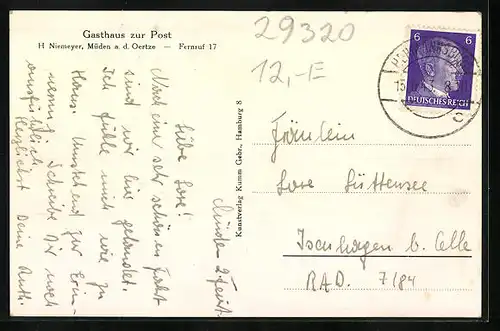 Gasthaus zur Post
H Niemeyer, Müden a. d. Oertze — Fernruf 17
29320
12,-E
6 6
DEUTSCHES REICH
c
Kunstverlag Kumm Gebr., Hamburg 8
Müden 2.
Liebe Lore!
Nach ein sehr schönen Fahrt
sind wir hier gelandet.
Ich fühle mich wie zu
Haus. Umstehend zur Erin-
nerung. Schreibe Dir noch
ausführlich
Herzlichst Deine Ruth.
Fräulein
Lore Lüttensee
Isenhagen b. Celle
RAD. 7/84